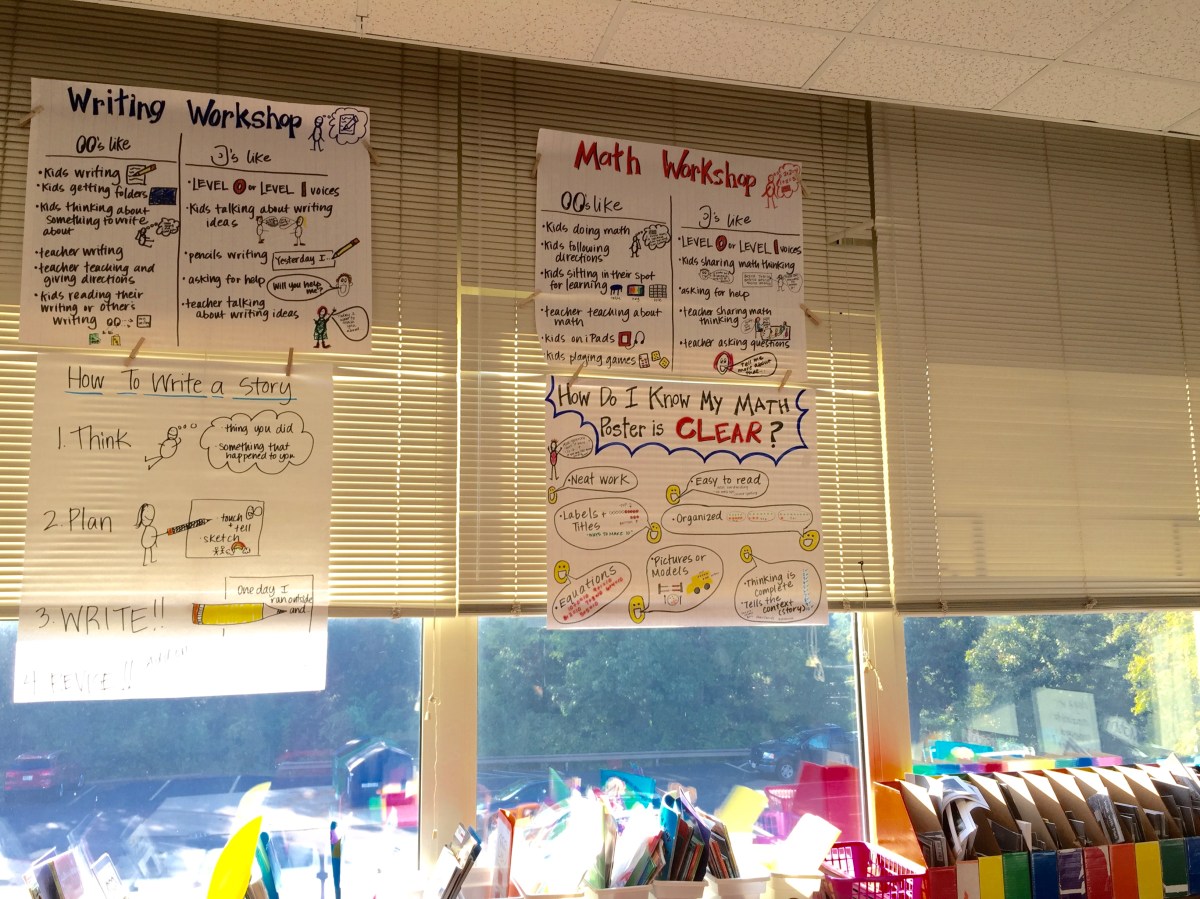 Writing Workshop
's like
• Kids writing
• Kids getting folders
• Kids thinking about
something to write
about
• teacher writing
• teacher teaching and
giving directions
• Kids reading their
writing or other's
writing
's like
• LEVEL 0 or LEVEL 1 voices
• Kids talking about writing
ideas
• pencils writing
Yesterday I...
• asking for help
Will you help
me?
• teacher talking
about writing ideas
How To Write a Story
1. Think
thing you did
• something that
happened to you
2. Plan
touch
+
tell
• sketch
3. WRITE!!
One day I
ran outside
and
4. REVISE!!
Math Workshop
's like
• Kids doing math
• Kids following
directions
• Kids sitting in their spot
for learning
• teacher teaching about
math
• kids on iPads
• kids playing games
's like
• LEVEL 0 or LEVEL 1 voices
• Kids sharing math thinking
• asking for help
• teacher sharing math
thinking
• teacher asking questions
Tell me
more about
that.
How Do I Know My Math
Poster is CLEAR?
• Neat work
• Easy to read
• Labels +
Titles
• Organized
• Equations
• Pictures or
Models
• Thinking is
complete
• Tells the
context (story)